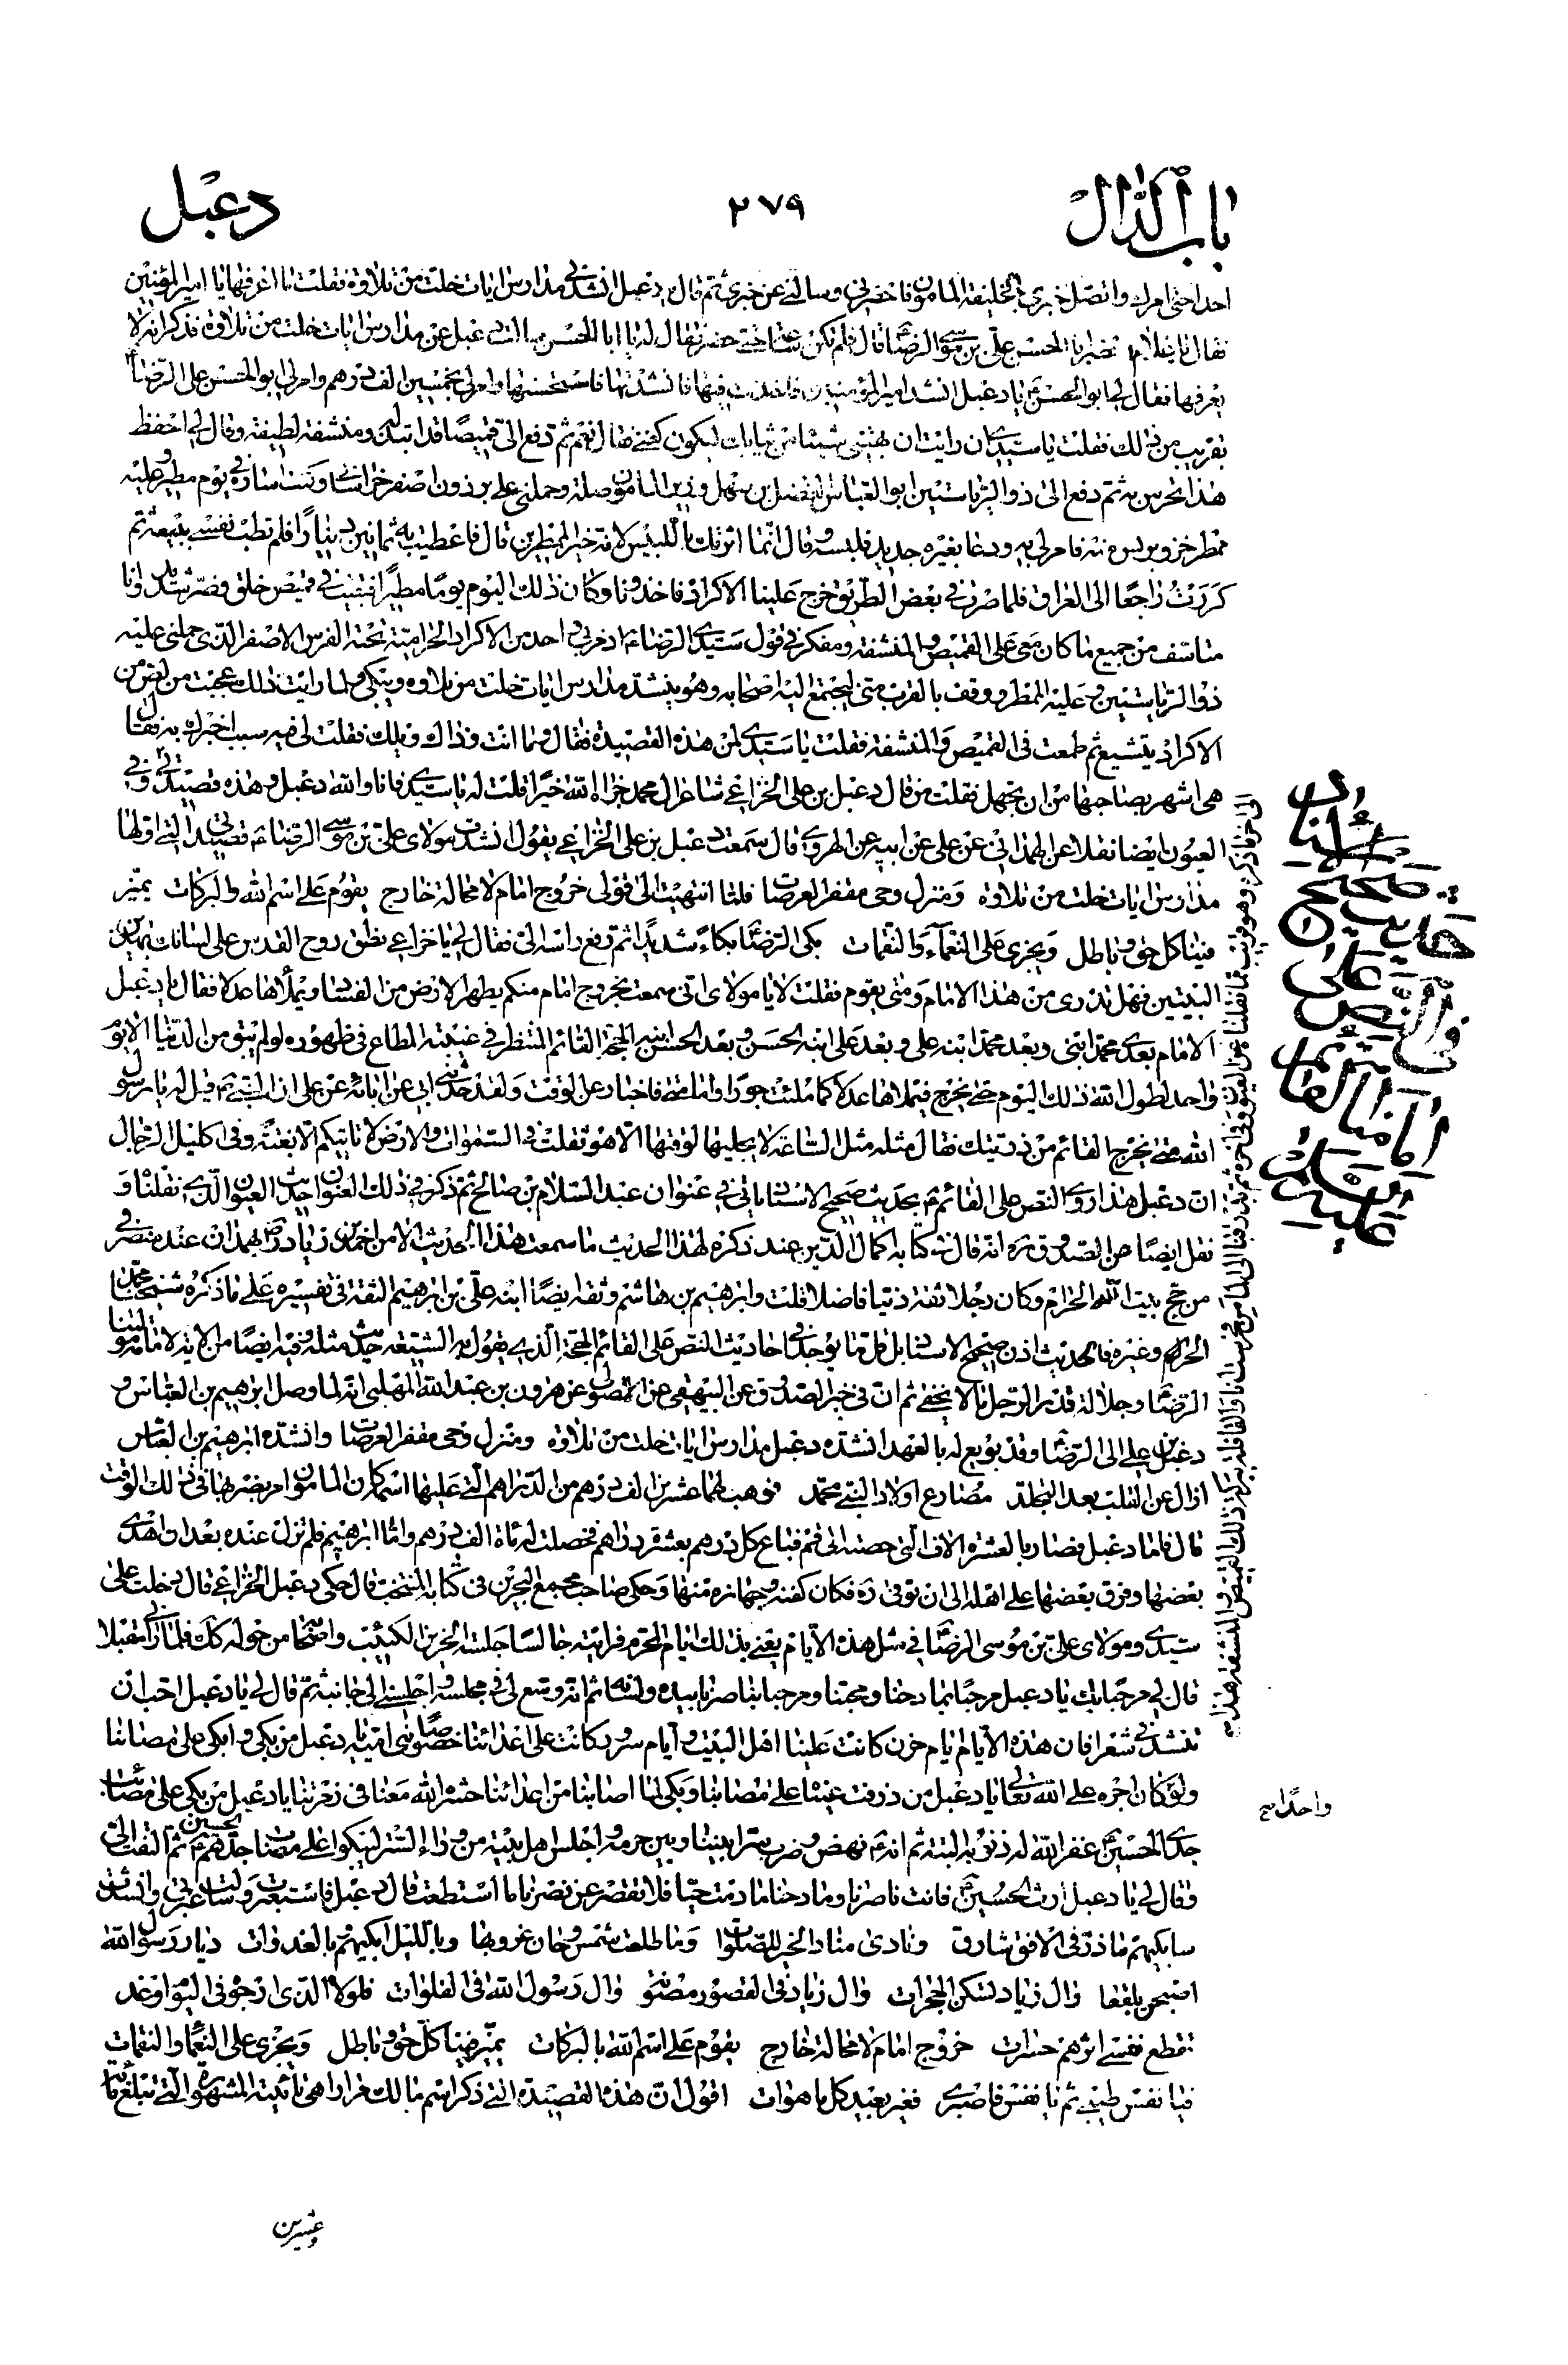 باب الدال
٢٧٩
دعبل
احدا حتى امرك واتصل خبرى بالخليفة المامون فاحضرنى وسالنى عن خبرى ثم قال يا دعبل انشدنى مدارس ايات خلت من تلاوة فقلت ما اعرفها يا امير المؤمنين
فقال يا غلام احضر ابا الحسن على بن موسى الرضا قال فلم تكن ساعة حتى حضر فقال له يا ابا الحسن سالت دعبل عن مدارس ايات خلت من تلاوة فذكر انه لا
يعرفها فقال لى ابو الحسن يا دعبل انشد امير المؤمنين فاخذت فيها فانشدتها فاستحسنها وامر لى بخمسين الف درهم وامر لى ابو الحسن على الرضا
بقريب من ذلك فقلت يا سيدى ان رايت ان تهبنى شيئا من ثيابك ليكون كفنى فقال نعم ثم دفع الى قميصا قد ابتذله ومنشفة لطيفة وقال لى احفظ
هذا تحرس به ثم دفع الى ذو الرياستين ابو العباس الفضل بن سهل وزير المامون صلة وحملنى على برذون اصفر خراسانى وكنت اسايره فى يوم مطير وعليه
ممطر خز وبرنس منه فامر لى به ودعا بغيره جديد فلبسه وقال انما اثرتك باللبيس لانه خير الممطرين قال فاعطيت به ثمانين دينارا فلم تطب نفسى ببيعه ثم
كررت راجعا الى العراق فلما صرت فى بعض الطريق خرج علينا الاكراد فاخذونا وكان ذلك اليوم يوما مطيرا فبقيت فى قميص خلق وضر شديد وانا
متاسف من جميع ما كان معى على القميص والمنشفة ومفكر فى قول سيدى الرضا ع اذ مر بى احد من الاكراد الحرامية تحته الفرس الاصفر الذى حملنى عليه
ذو الرياستين وعليه الممطر ووقف بالقرب منى ليجتمع اليه اصحابه وهو ينشد مدارس ايات خلت من تلاوة ويبكى فلما رايت ذلك عجبت من لص من
الاكراد يتشيع ثم طمعت فى القميص والمنشفة فقلت يا سيدى لمن هذه القصيدة فقال وما انت وذاك ويلك فقلت لى فيه سبب اخبرك به فقال
هى اشهر بصاحبها من ان تجهل فقلت من قال دعبل بن على الخزاعى شاعر ال محمد جزاه الله خيرا قلت له يا سيدى فانا والله دعبل وهذه قصيدتى وفى
العيون ايضا نقلا عن الهمدانى عن على عن ابيه عن الهروى قال سمعت دعبل بن على الخزاعى يقول انشدت مولاى على بن موسى الرضا ع قصيدتى التى اولها
مدارس ايات خلت من تلاوة ومنزل وحى مقفر العرصات فلما انتهيت الى قولى خروج امام لا محالة خارج يقوم على اسم الله والبركات يميز
فينا كل حق وباطل ويجزى على النعماء والنقمات بكى الرضا بكاء شديدا ثم رفع راسه الى فقال لى يا خزاعى نطق روح القدس على لسانك بهذين
البيتين فهل تدرى من هذا الامام ومتى يقوم فقلت لا يا مولاى انى سمعت بخروج امام منكم يطهر الارض من الفساد ويملأها عدلا فقال يا دعبل
الامام بعدى محمد ابنى وبعد محمد ابنه على وبعد على ابنه الحسن وبعد الحسن ابنه الحجة القائم المنتظر فى غيبته المطاع فى ظهوره لو لم يبق من الدنيا الا يوم
واحد لطول الله ذلك اليوم حتى يخرج فيملاها عدلا كما ملئت جورا واما متى فاخبار عن الوقت ولقد حدثنى ابى عن ابائه عن على ان النبى ص قيل له يا رسول
الله متى يخرج القائم من ذريتك فقال مثله مثل الساعة لا يجليها لوقتها الا هو ثقلت فى السموات والارض لا تاتيكم الا بغتة وفى اكليل الرجال
ان دعبل هذا روى النص على القائم ع بحديث صحيح الاسناد ياتى فى عنوان عبد السلام بن صالح ثم ذكر فى ذلك العنوان حديث العيون الذى نقلناه و
نقل ايضا عن الصدوق ره انه قال فى كتابه اكمال الدين عند ذكره لهذا الحديث ما سمعت هذا الحديث الا من احمد بن زياد رض بهمدان عند منصرفى
من حج بيت الله الحرام وكان رجلا ثقة دينا فاضلا قلت وابرهيم بن هاشم وثقه ايضا ابنه على بن ابرهيم الثقة فى تفسيره على ما ذكره شيخنا محمد
الحر وغيره فالحديث اذن صحيح الاسناد بل قل ما يوجد فى احاديث النص على القائم الحجة الذى يقول به الشيعة حديث مثله وفيه ايضا من الاية لامامة مولينا
الرضا وجلالة قدر الرجل ما لا يخفى ثم ان فى خبر الصدوق عن البيهقى عن الصولى عن هرون بن عبد الله المهلبى انه لما وصل ابرهيم بن العباس و
دعبل بن على الى الرضا وقد بويع له بالعهد انشده دعبل مدارس ايات خلت من تلاوة ومنزل وحى مقفر العرصات وانشده ابرهيم بن العباس
ازال عن القلب بعد التجلد مصارع اولاد النبى محمد فوهب لهما عشرين الف درهم من الدراهم التى عليها اسمه كان المامون امر بضربها فى ذلك الوقت
قال فاما دعبل فصار بالعشرة الاف التى حصته الى قم فباع كل درهم بعشرة دراهم فحصلت له مائة الف درهم واما ابرهيم فلم تزل عنده بعد ان اهدى
بعضها وفرق بعضها على اهله الى ان توفى ره فكان كفنه وجهازه منها وحكى صاحب مجمع البحرين فى كتابه المنتخب قال حكى دعبل الخزاعى قال دخلت على
سيدى ومولاى على بن موسى الرضا فى مثل هذه الايام يعنى بذلك ايام المحرم فرايته جالسا جلسة الحزين الكئيب واصحابه من حوله كك فلما رانى مقبلا
قال لى مرحبا بك يا دعبل مرحبا بمادحنا ومحبنا ومرحبا بناصرنا بيده ولسانه ثم انه وسع لى فى مجلسه واجلسنى الى جانبه ثم قال لى يا دعبل احب ان
تنشدنى شعرا فان هذه الايام ايام حزن كانت علينا اهل البيت وايام سرور كانت على اعدائنا خصوصا بنى امية يا دعبل من بكى وابكى على مصابنا
ولو كان اجره على الله تعالى يا دعبل من ذرفت عيناه على مصابنا وبكى لما اصابنا من اعدائنا حشره الله معنا فى زمرتنا يا دعبل من بكى على مصائب
جدى الحسين غفر الله له ذنوبه البتة ثم انه ع نهض وضرب سترا بيننا وبين حرمه واجلس اهل بيته من وراء الستر ليبكوا على مصاب جدهم الحسين ع ثم التفت الى
وقال لى يا دعبل ارث الحسين فانت ناصرنا ومادحنا ما دمت حيا فلا تقصر عن نصرنا ما استطعت قال دعبل فاستعبرت وسالت عبرتى وانشات
سابكيهم ما ذر فى الافق شارق ونادى مناد الخير للصلوات وما طلعت شمس وحان غروبها وبالليل ابكيهم وبالغدوات ديار رسول الله
اصبحن بلقعا وال زياد تسكن الحجرات وال زياد فى القصور مصونة وال رسول الله فى الفلوات فلولا الذى ارجو فى اليوم او غد
تقطع نفسى اثرهم حسرات خروج امام لا محالة خارج يقوم على اسم الله بالبركات يميز فينا كل حق وباطل ويجزى على النعما والنقمات
فيا نفس طيبى ثم يا نفس فاصبرى فغير بعيد كل ما هوات اقول ان هذه القصيدة التى ذكر اسم مالك خرارا هى تائيته المشهورة والتى تبلغ مائة
وعشرين
اسناد
صحيح
حديث
فى النص على
امامنا القائم
عليه السلام
واحدا صح